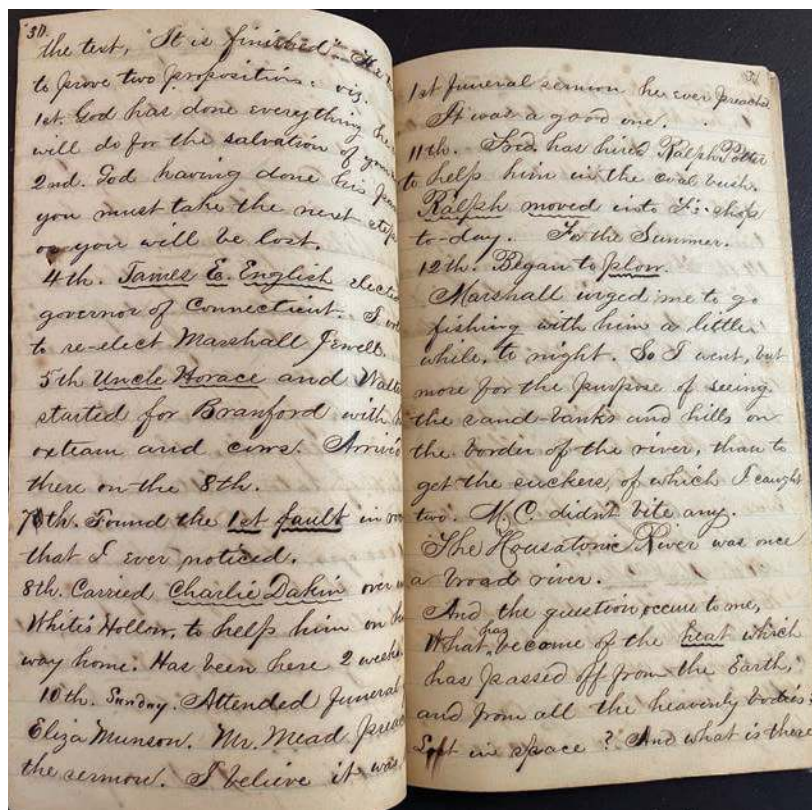 30.
the text, "It is finished." He
to prove two propositions: viz.
1st. God has done everything he
will do for the salvation of your
2nd. God having done his
you must take the next step
or you will be lost.
4th. James E. English elected
governor of Connecticut. I
to re-elect Marshall Jewell.
5th Uncle Horace and Walter
started for Branford with
oxteam and cows. Arrived
there on the 8th.
7th. Found the 1st fault in
that I ever noticed.
8th. Carried Charlie Dakin over
White's Hollow, to help him on
way home. Has been here 2 weeks
10th. Sunday. Attended funeral
Eliza Munson. Mr. Mead
the sermon. I believe it was
31
1st funeral sermon he ever preached
It was a good one.
11th. Fred. has hired Ralph Potter
to help him in the coal bush.
Ralph moved into F's shop
to-day. For the Summer.
12th. Began to plow.
Marshall urged me to go
fishing with him a little
while, to night. So I went, but
more for the purpose of seeing
the sand-banks and hills on
the border of the river, than to
get the suckers, of which I caught
two. M.C. didn't bite any.
The Housatonic River was once
a broad river.
And the question occurs to me,
What has become of the heat which
has passed off from the Earth,
and from all the heavenly bodies?
Lost in space? And what is there